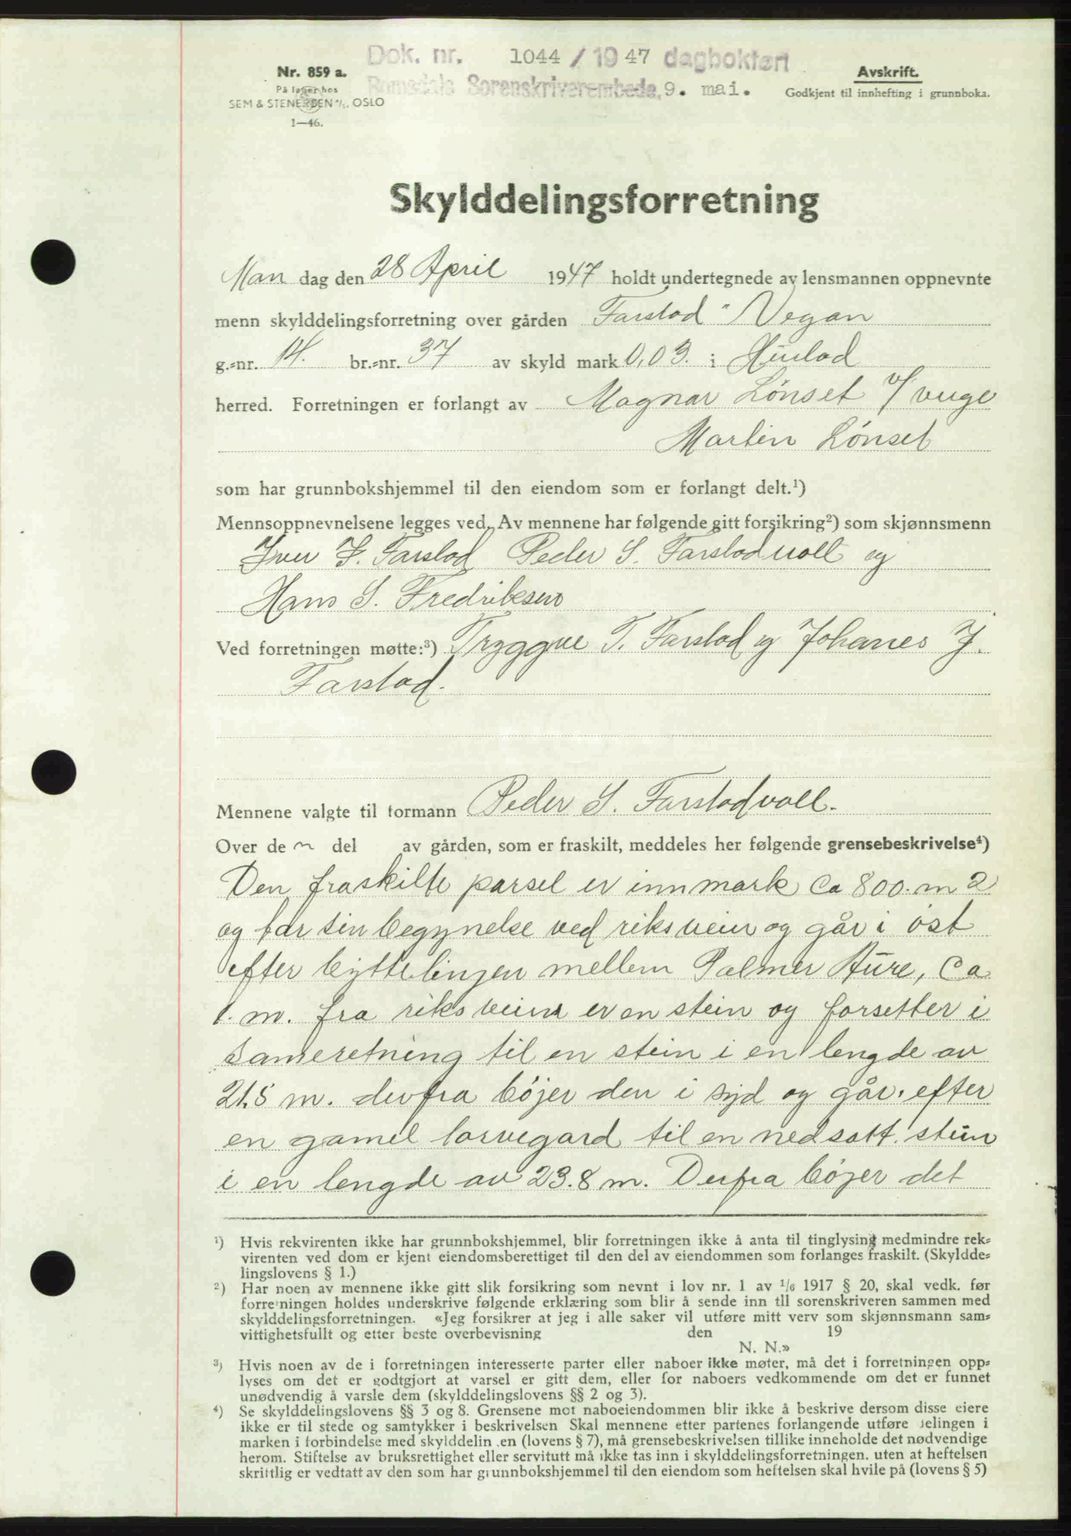 Dok. nr. 1044 / 1947 dagboktørt
Romsdals Sorenskriverembede, 9. mai.
Nr. 859 a.
På lager hos
SEM & STENERSEN A/S, OSLO
1—46.
Avskrift.
Godkjent til innhefting i grunnboka.
Skylddelingsforretning
Man dag den 28 April 1947 holdt undertegnede av lensmannen oppnevnte
menn skylddelingsforretning over gården Farstad "Vegan
g.-nr. 14. br.-nr. 37 av skyld mark 0,03. i Hustad
herred. Forretningen er forlangt av Magnar Lønset v/ verge
Martin Lønset
som har grunnbokshjemmel til den eiendom som er forlangt delt.¹)
Mennsoppnevnelsene legges ved. Av mennene har følgende gitt forsikring²) som skjønnsmenn
Iver J. Farstad Peder S. Farstadvoll og
Hans S. Fredriksen
Ved forretningen møtte:³) Tryggve T. Farstad og Johanes J.
Farstad.
Mennene valgte til formann Peder S. Farstadvoll.
Over de n del av gården, som er fraskilt, meddeles her følgende grensebeskrivelse⁴)
Den fraskilte parsel er innmark ca 800. m 2
og tar sin begynelse ved riksveien og går i øst
efter byttelinjen mellem Palmer Aure, Ca
1. m. fra riksveien er en stein og forsetter i
sameretning til en stein i en lengde av
21.5 m. derfra bøjer den i syd og går. efter
en gamel torvegard til en nedsatt. stein
i en lengde av 23.8 m. Derfra bøjer det
¹) Hvis rekvirenten ikke har grunnbokshjemmel, blir forretningen ikke å anta til tinglysing medmindre rek-
virenten ved dom er kjent eiendomsberettiget til den del av eiendommen som forlanges fraskilt. (Skyldde-
lingslovens § 1.)
²) Har noen av mennene ikke gitt slik forsikring som nevnt i lov nr. 1 av 1/6 1917 § 20, skal vedk. før
forretningen holdes underskrive følgende erklæring som blir å sende inn til sorenskriveren sammen med
skylddelingsforretningen. «Jeg forsikrer at jeg i alle saker vil utføre mitt verv som skjønnsmann sam-
vittighetsfullt og etter beste overbevisning den 19
N. N.»
³) Hvis noen av de i forretningen interesserte parter eller naboer ikke møter, må det i forretningen opp-
lyses om det er godtgjort at varsel er gitt dem, eller for naboers vedkommende om det er funnet
unødvendig å varsle dem (skylddelingslovens §§ 2 og 3).
⁴) Se skylddelingslovens §§ 3 og 8. Grensene mot naboeiendommen blir ikke å beskrive dersom disse eiere
ikke er til stede og samtykker i beskrivelsen Skal mennene etter partenes forlangende utføre delingen i
marken i forbindelse med skylddelingen (lovens § 7), må grensebeskrivelsen tillike inneholde det nødvendige
herom. Stiftelse av bruksrettighet eller servitutt må ikke tas inn i skylddelingsforretningen. uten at heftelsen
skriftlig er vedtatt av den som har grunnbokshjemmel til den eiendom som heftelsen skal hvile på (lovens § 5)